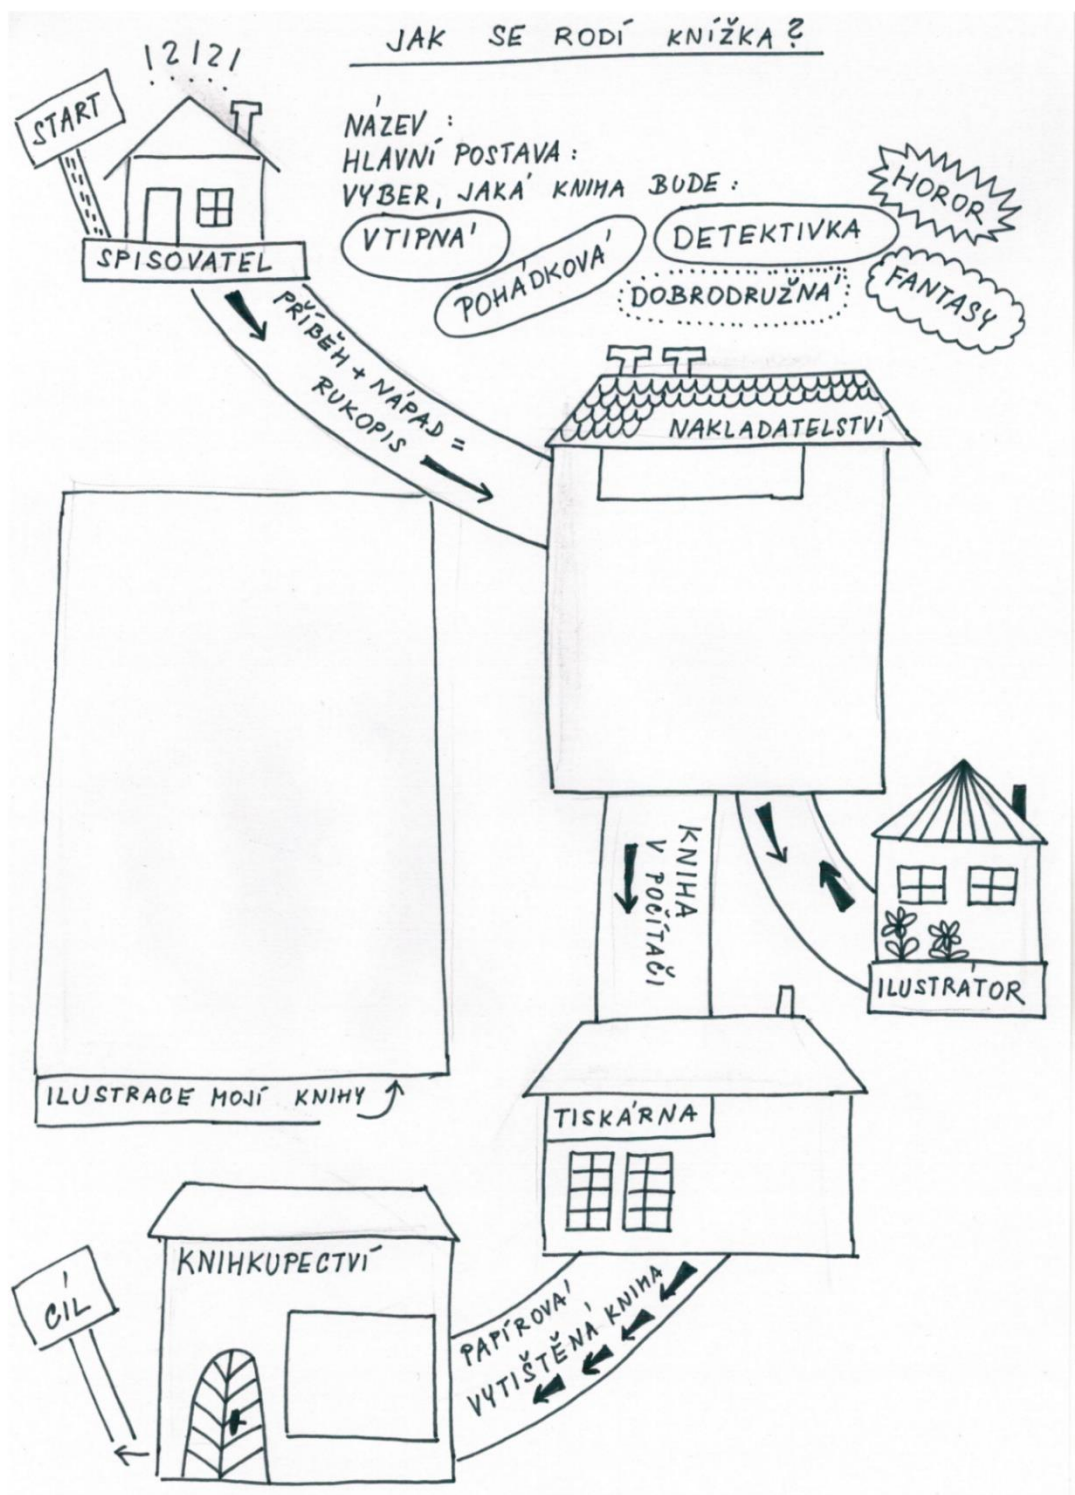 JAK SE RODÍ KNÍŽKA?
!?!?!
START
SPISOVATEL
NÁZEV :
HLAVNÍ POSTAVA :
VYBER, JAKÁ KNIHA BUDE :
VTIPNÁ
POHÁDKOVÁ
DETEKTIVKA
DOBRODRUŽNÁ
HOROR
FANTASY
PŘÍBĚH + NÁPAD =
RUKOPIS
NAKLADATELSTVÍ
KNIHA
V POČÍTAČI
ILUSTRÁTOR
ILUSTRACE MOJÍ KNIHY
TISKÁRNA
PAPÍROVÁ
VYTIŠTĚNÁ KNIHA
KNIHKUPECTVÍ
CÍL